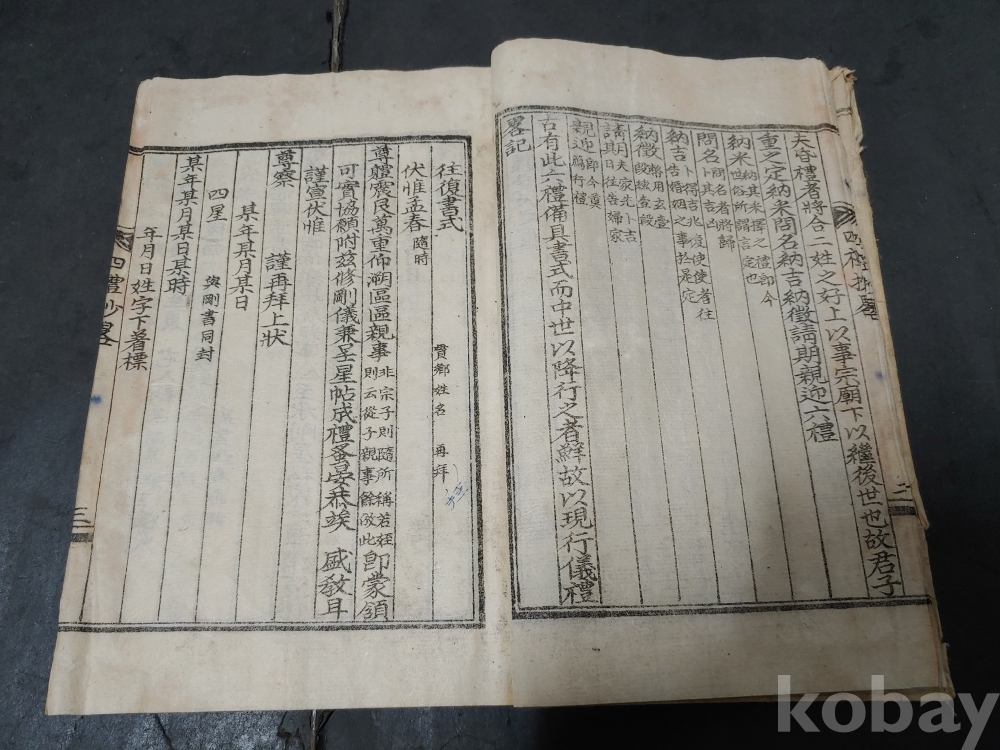 夫昏禮者將合二姓之好上以事宗廟下以繼後世也故君子
重之定納采問名納吉納徵請期親迎六禮
納采納其采擇之禮卽今世俗所謂言定也
問名問名者將歸卜其吉凶
納吉卜得吉兆復使使者往告婚姻之事於是定
納徵
請期夫家先卜吉日往告婦家
親迎卽今奠鴈行禮
古有此六禮備具書式而中世以降行之者鮮故以現行儀禮
畧記
四禮抄畧
三
往復書式
貫鄉姓名 再拜
伏惟孟春隨時
尊體震艮萬重仰溯區區親事非宗子則隨所稱若姪則云從子親事餘倣此卽蒙頷
可實協願附玆修剛儀兼呈星帖成禮 恭竢 盛敎耳
謹宣伏惟
尊察 謹再拜上狀
某年某月某日
四星 與剛書同封
某年某月某日某時
年月日姓字下着標
四禮抄畧
三
kobay